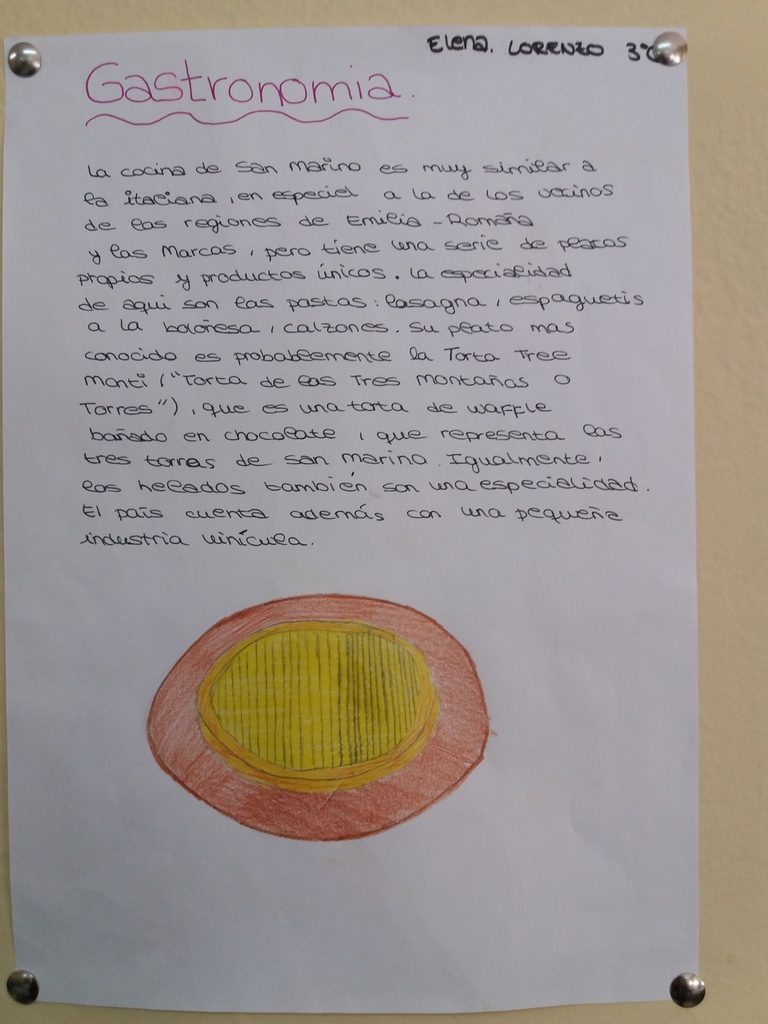 Elena. LORENZO 3ºC
Gastronomia.
La cocina de San Marino es muy similar a
la italiana, en especial a la de los vecinos
de las regiones de Emilia-Romaña
y las Marcas, pero tiene una serie de platos
propios y productos únicos. La especialidad
de aqui son las pastas: lasagna, espaguetis
a la boloñesa, calzones. Su plato mas
conocido es probablemente la Torta Tree
Monti ("Torta de las Tres Montañas O
Torres"), que es una torta de waffle
bañado en chocolate, que representa las
tres torres de San Marino. Igualmente,
los helados también son una especialidad.
El país cuenta además con una pequeña
industria vinícula.